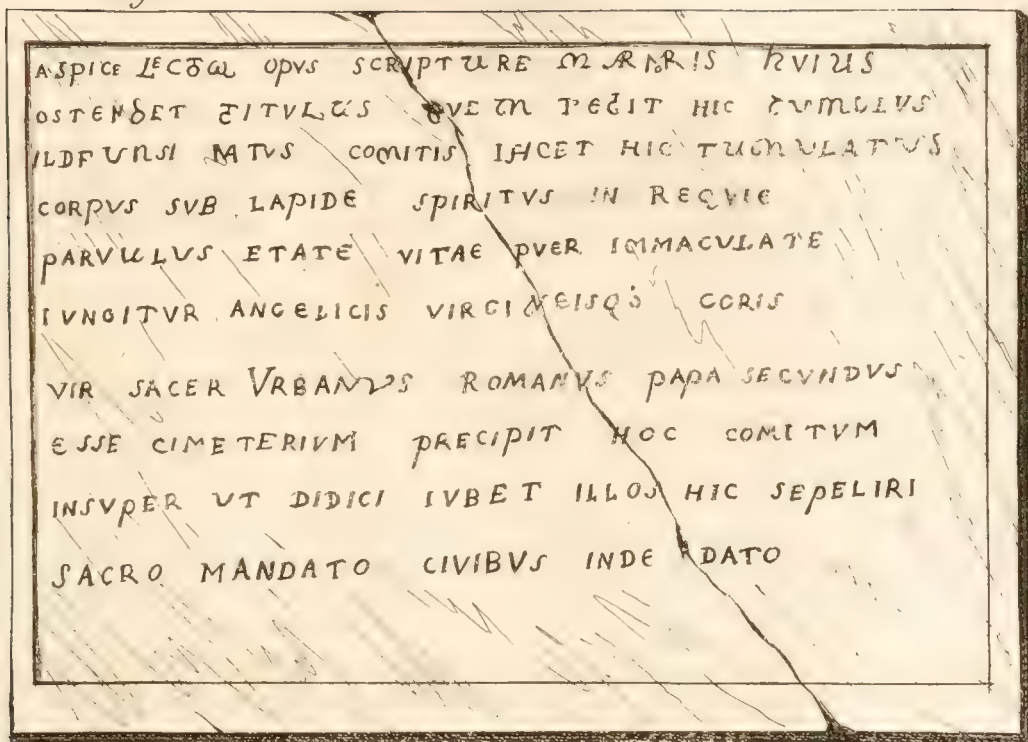 ASPICE LECTOR OPVS SCRIPTURE MARMORIS HVIUS
OSTENDET TITVLUS QVEM TEGIT HIC TVMVLVS
ILDFUNSI NATVS COMITIS IACET HIC TUMVLATVS
CORPVS SVB LAPIDE SPIRITVS IN REQVIE
PARVULVS ETATE VITAE PVER IMMACVLATE
IVNGITVR ANGELICIS VIRGINEISQ CORIS
VIR SACER VRBANVS ROMANVS PAPA SECVNDVS
ESSE CIMETERIVM PRECIPIT HOC COMITVM
INSVPER UT DIDICI IVBET ILLOS HIC SEPELIRI
SACRO MANDATO CIVIBVS INDE DATO